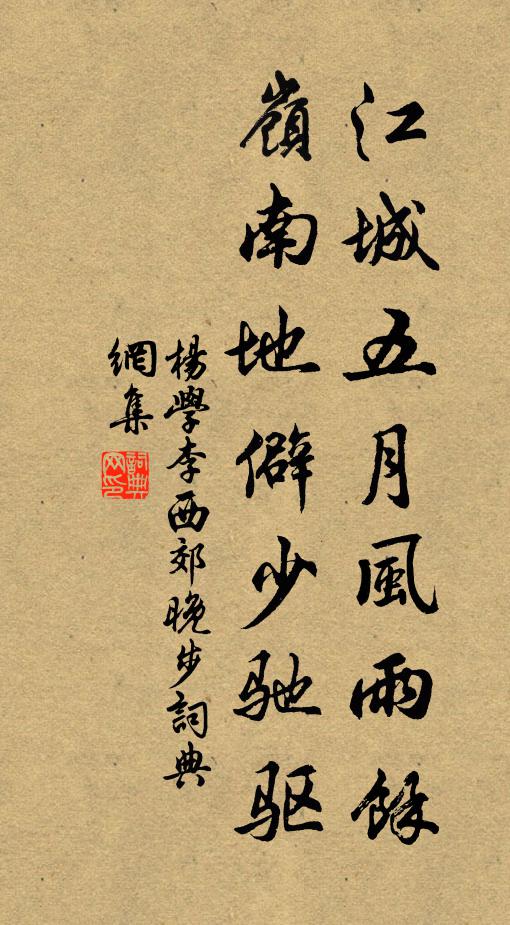 江城五月風雨餘
嶺南地僻少驰驱
楊學李西郊晚步詞典
網集
詞典網印